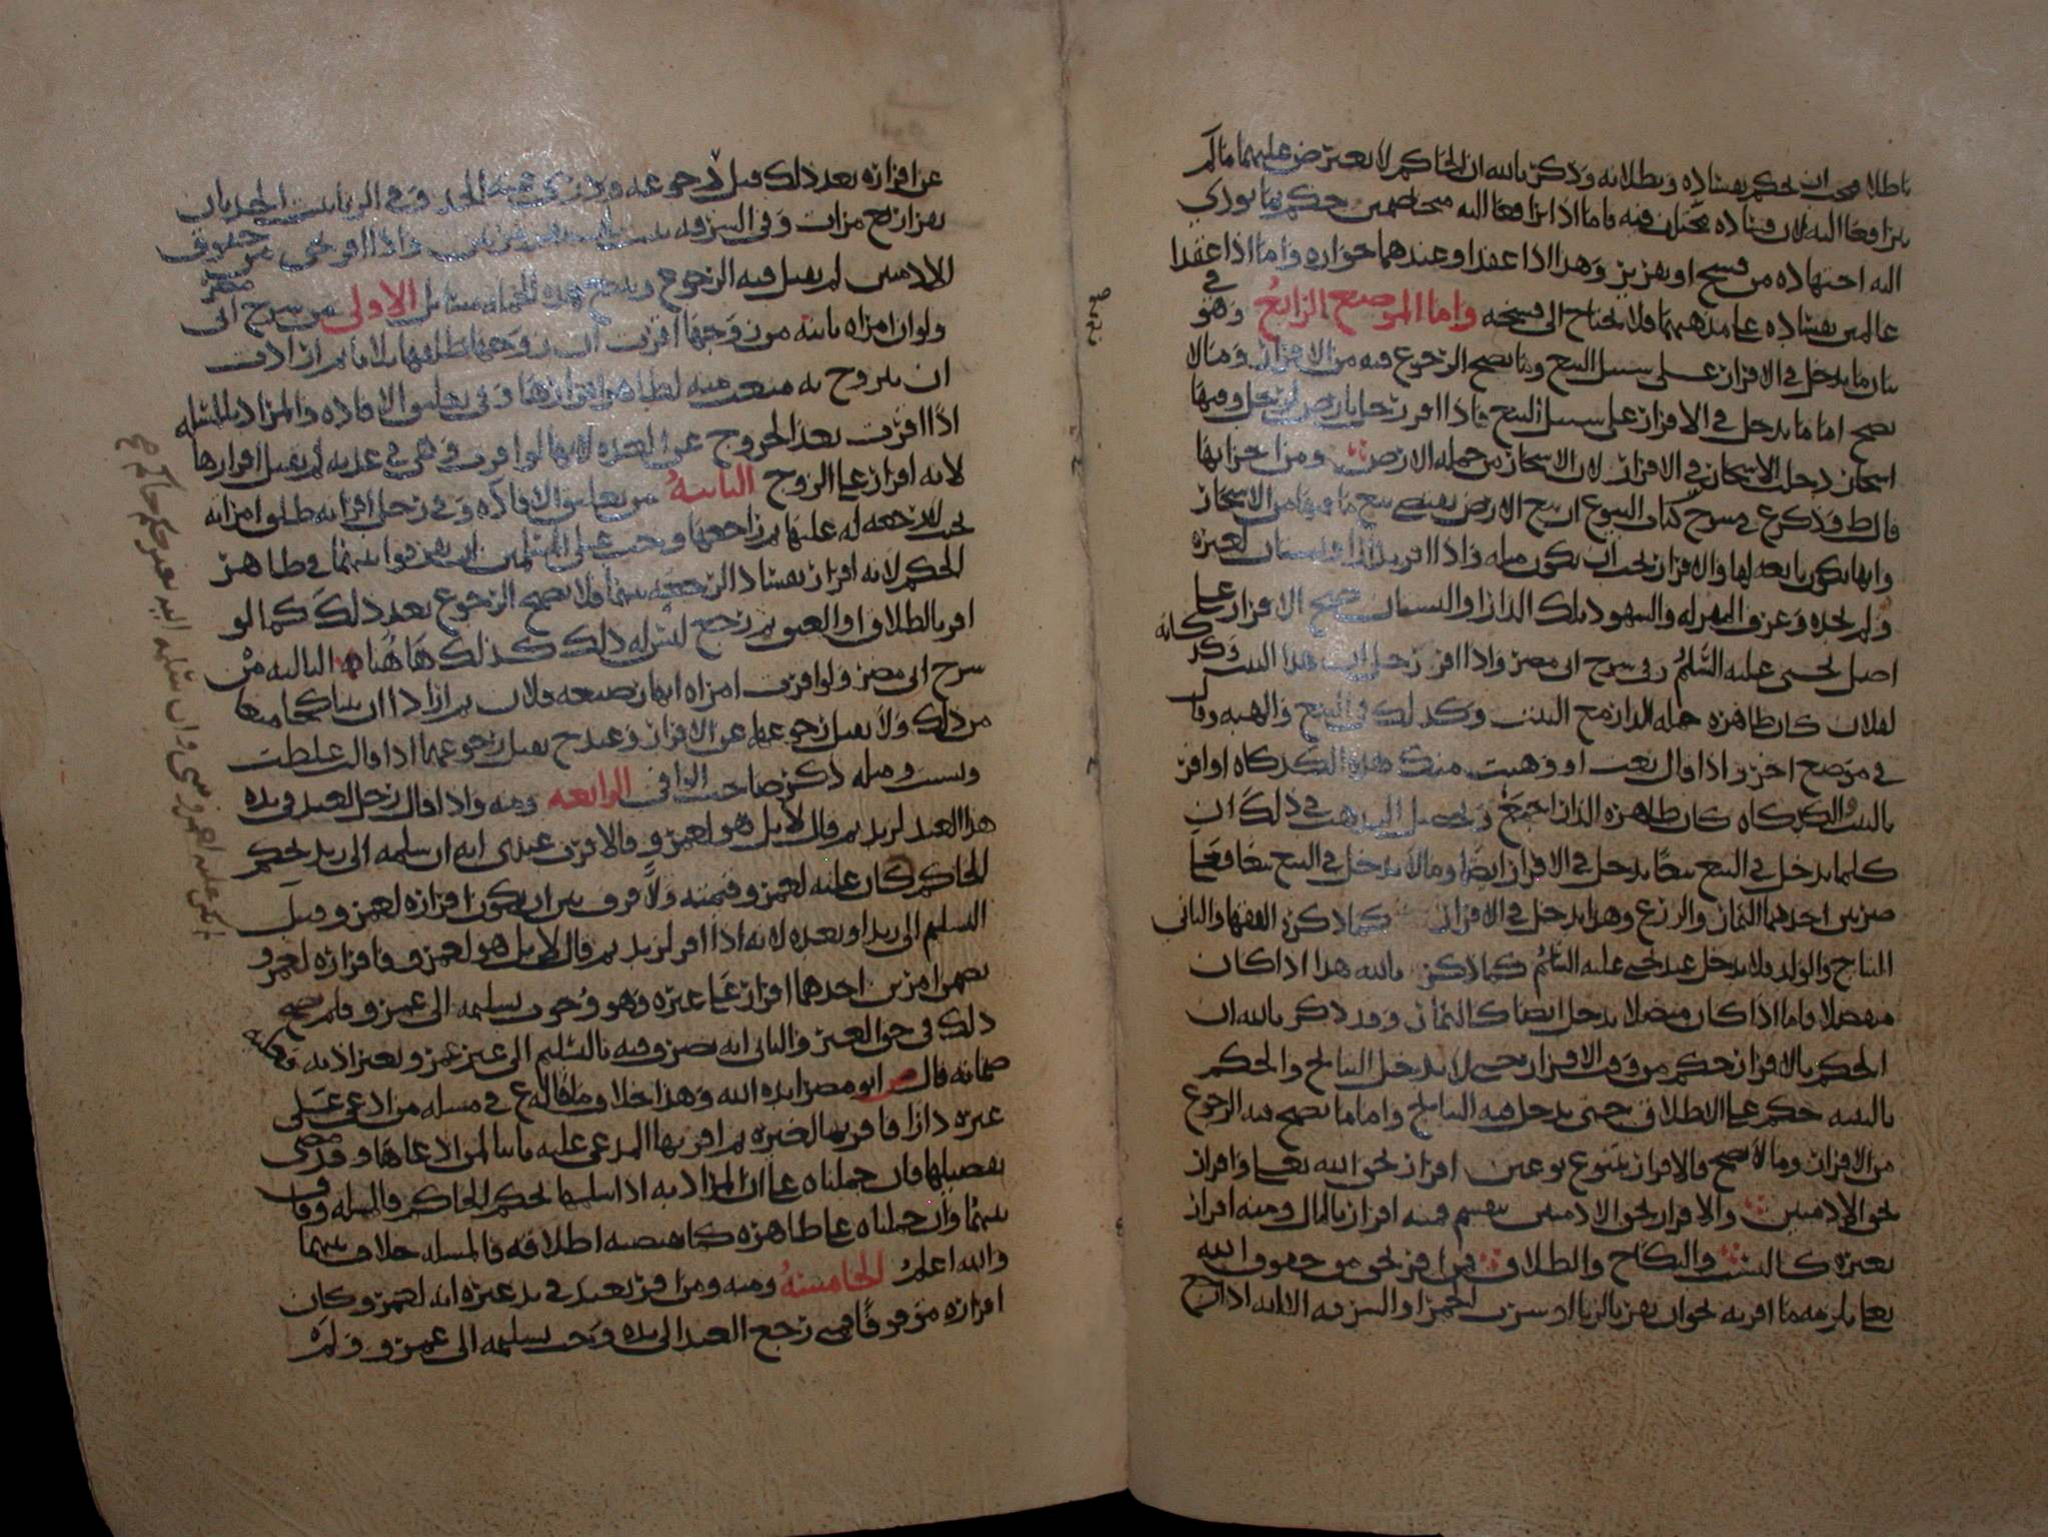 باطلا فيجب ان يحكم بفساده وبطلانه وذكر بالله ان الحاكم لا يعترض عليهما ما لم
يترافعا اليه لان فساده مختلف فيه فاما اذا ترافعا اليه متخاصمين حكم بما يودي
اليه اجتهاده من فسخ او تقرير وهذا اذا عقدا وعندهما جوازه واما اذا عقدا
عالمين بفساده على مذهبهما فلا يحتاج الى فسخه واما الموضع الرابع وهو في
بيان ما يدخل في الاقرار على سبيل البيع وما يصح الرجوع فيه من الاقرار وما لا
يصح اما ما يدخل في الاقرار على سبيل البيع فاذا اقر رجل بارض لرجل وفيها
اشجار دخلت الاشجار في الاقرار لان الاشجار من جمله الارض ومن اجزايها
قال ط وذكر ع في شرح كتاب البيوع ان بيع الارض يقتضي بيع ما فيها من الاشجار
وانها تكون تابعه لها والاقرار يجب ان يكون مثله واذا اقر بدار او بستان لغيره
ولم يحده وعرف المقر له والشهود تلك الدار او البستان صح الاقرار على
اصل يحيى عليه السلم وفي شرح ابي مضر واذا اقر رجل ان هذا البيت وكذكانه
لفلان كان ظاهره جمله الدار مع البيت وكذلك في البيع والهبه وقال
في موضع اخر واذا قال بعت او وهبت منك هذه الكذكاه او اقر
بالبيت والكذكاه كان ظاهره الدار اجمع وتحصيل المذهب في ذلك ان
كلما يدخل في البيع تبعا يدخل في الاقرار ايضا وما لا يدخل في البيع تبعا فعلى
ضربين احدهما الثمار والزرع وهذا يدخل في الاقرار كما ذكره الفقها والثاني
النتاج والولد فلا يدخل عند يحيى عليه السلم كما ذكر بالله هذا اذا كان
منفصلا فاما اذا كان متصلا يدخل ايضا كالثمار وقد ذكر بالله ان
الحكم بالاقرار حكم من وقت الاقرار حتى لا يدخل النتايج والحكم
بالبينه حكم على الاطلاق حتى يدخل فيه النتايج واما ما يصح فيه الرجوع
من الاقرار وما لا يصح فالاقرار يتنوع نوعين اقرار بحق الله تعلى واقرار
بحق الادميين والاقرار بحق الادميين ينقسم فمنه اقرار بالمال ومنه اقرار
بغيره كالنسب والنكاح والطلاق فمن اقر بحق من حقوق الله
تعلى يلزمه ما اقر به نحو ان يقر بالزنا او بشرب الخمر او السرقه الا انه اذا رجع
عن اقراره بعد ذلك قبل رجوعه ودري عنه الحد وفي الزنا يجب الحد بان
يقر اربع مرات وفي السرقه مرتين واذا اقر بحق من حقوق
الادميين لم يقبل فيه الرجوع مسايل الاولى من شرح ابي مضر
ولو ان امراه باينه من زوجها اقرت ان زوجها طلقها ثلاثا ثم ارادت
ان يتزوج به منعت منه لظاهر اقرارها وفي تعليق الافاده والمراد بالمسله
اذا اقرت بعد الخروج عن العده لانها لو اقرت وهي في عدته لم يقبل اقرارها
لانه اقرار على الزوج الثانيه من تعليق الافاده وفي رجل اقر انه طلق امراته
الحكم لانه اقرار بفساد الرجعه بينهما فلا يصح الرجوع بعد ذلك كما لو
اقر بالطلاق او العتق ثم رجع ليس له ذلك كذلك هاهنا الثالثه من
شرح ابي مضر ولو اقرت امراه انها رضيعه فلان ثم ارادا ان يتناكحا منعا
من ذلك ولا يقبل رجوعها عن الاقرار وعند ح يقبل رجوعهما اذا قالت غلطت
ونسيت ومثله ذكر صاحب الوافي الرابعه ومنه واذا قال رجل لعبد في يده
هذا العبد لزيد ثم قال لا بل هو لعمرو فالاقرب عندي انه ان سلمه الى زيد بحكم
الحاكم كان عليه لعمرو قيمته ولا فرق بين ان يكون اقراره لعمرو قبل
التسليم الى زيد او بعده لانه اذا اقر لزيد ثم قال لا بل هو لعمرو فاقراره لعمرو
تضمن امرين احدهما اقرار على غيره وهو وجوب تسليمه الى عمرو فلم يصح
ذلك في حق الغير والثاني انه تصرف فيه بالتسليم الى غير عمرو بغير اذنه فلزمه
ضمانه قال ابو مضر ايده الله وهذا خلاف ما قاله ع في مسله من ادعى على
غيره دارا فاقر بها لغيره ثم اقر بها المدعى عليه ثانيا لمن ادعاها وقد مضى
تفصيلها فان حملناه على ان المراد به اذا سلمها بحكم الحاكم فالمسله وفاق
بينهما وان حملناه على ظاهره كما يقتضيه اطلاقه فالمسله خلاف بينهما
والله اعلم الخامسه ومنه ومن اقر بعبد في يد غيره انه لعمرو كان
اقراره موقوفا فمتى رجع العبد الى يده وجب تسليمه الى عمرو ولم